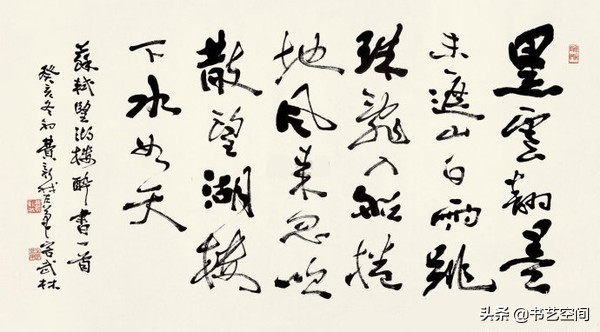 黑雲翻墨
未遮山白雨跳
珠亂入船捲
地風來忽吹
散望湖樓
下水如天
蘇軾望湖樓醉書一首
癸亥冬初費新我左筆客武林
头条 @书艺空间